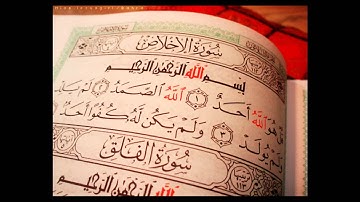 سُورَةُ الإِخْلَاصِ
بِسْمِ اللَّهِ الرَّحْمَٰنِ الرَّحِيمِ
هُوَ اللَّهُ أَحَدٌ ١ اللَّهُ الصَّمَدُ ٢ لَمْ يَلِدْ
وَلَمْ يُولَدْ ٣ وَلَمْ يَكُن لَّهُ كُفُوًا أَحَدٌ
سُورَةُ الْفَلَقِ
١١٣
بِسْمِ اللَّهِ الرَّحْمَٰنِ الرَّحِيمِ